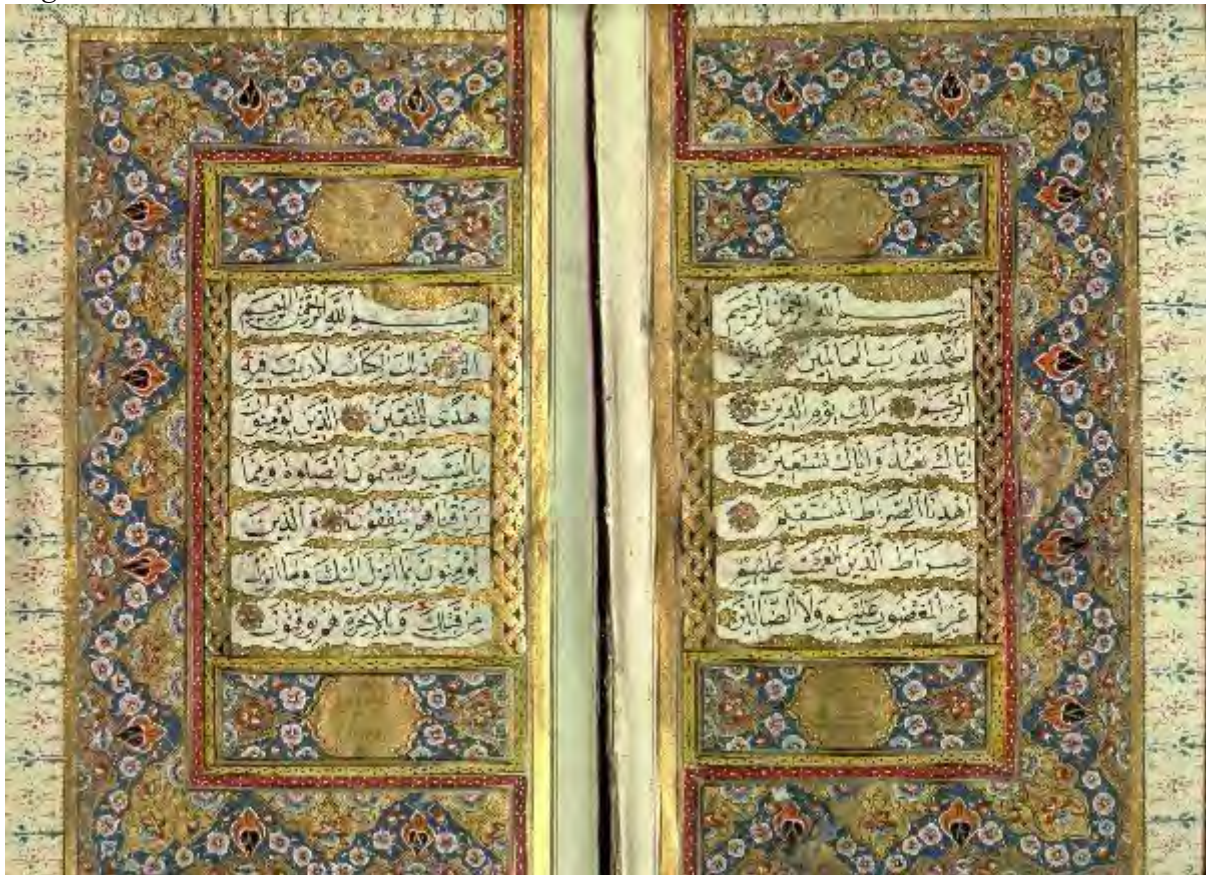 بِسْمِ اللَّهِ الرَّحْمٰنِ الرَّحِيمِ
الْحَمْدُ لِلَّهِ رَبِّ الْعَالَمِينَ
الرَّحِيمِ مَالِكِ يَوْمِ الدِّينِ
إِيَّاكَ نَعْبُدُ وَإِيَّاكَ نَسْتَعِينُ
اهْدِنَا الصِّرَاطَ الْمُسْتَقِيمَ
صِرَاطَ الَّذِينَ أَنْعَمْتَ عَلَيْهِمْ
غَيْرِ الْمَغْضُوبِ عَلَيْهِمْ وَلَا الضَّالِّينَ
بِسْمِ اللَّهِ الرَّحْمٰنِ الرَّحِيمِ
الم ذَلِكَ الْكِتَابُ لَا رَيْبَ فِيهِ
هُدًى لِلْمُتَّقِينَ الَّذِينَ يُؤْمِنُونَ
بِالْغَيْبِ وَيُقِيمُونَ الصَّلٰوةَ وَمِمَّا
رَزَقْنَاهُمْ يُنْفِقُونَ وَالَّذِينَ
يُؤْمِنُونَ بِمَا أُنْزِلَ إِلَيْكَ وَمَا أُنْزِلَ
مِنْ قَبْلِكَ وَبِالْآخِرَةِ هُمْ يُوقِنُونَ